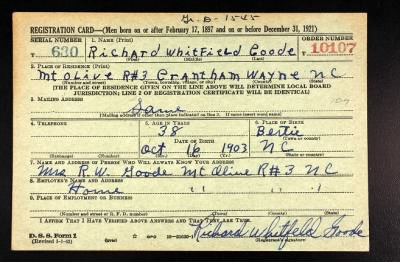 Gr-D-1545
REGISTRATION CARD—(Men born on or after February 17, 1897 and on or before December 31, 1921)
SERIAL NUMBER 1. NAME (Print) ORDER NUMBER
630 Richard Whitfield Goode 10107
(First) (Middle) (Last)
2. PLACE OF RESIDENCE (Print)
Mt Olive R#3 Grantham Wayne NC
(Number and street) (Town, township, village, or city) (County) (State)
[THE PLACE OF RESIDENCE GIVEN ON THE LINE ABOVE WILL DETERMINE LOCAL BOARD
JURISDICTION; LINE 2 OF REGISTRATION CERTIFICATE WILL BE IDENTICAL]
3. MAILING ADDRESS
Same
[Mailing address if other than place indicated on line 2. If same insert word same]
4. TELEPHONE 5. AGE IN YEARS 6. PLACE OF BIRTH
38 Bertie
DATE OF BIRTH (Town or county)
Oct 16 1903 NC
(Exchange) (Number) (Mo.) (Day) (Yr.) (State or country)
7. NAME AND ADDRESS OF PERSON WHO WILL ALWAYS KNOW YOUR ADDRESS
Mrs R.W. Goode Mt Olive R#3 NC
8. EMPLOYER'S NAME AND ADDRESS
Home " " "
9. PLACE OF EMPLOYMENT OR BUSINESS
(Number and street or R. F. D. number) (Town) (County) (State)
I AFFIRM THAT I HAVE VERIFIED ABOVE ANSWERS AND THAT THEY ARE TRUE.
D. S. S. Form 1
(Revised 1-1-42) Richard Whitfield Goode
(Registrant's signature)